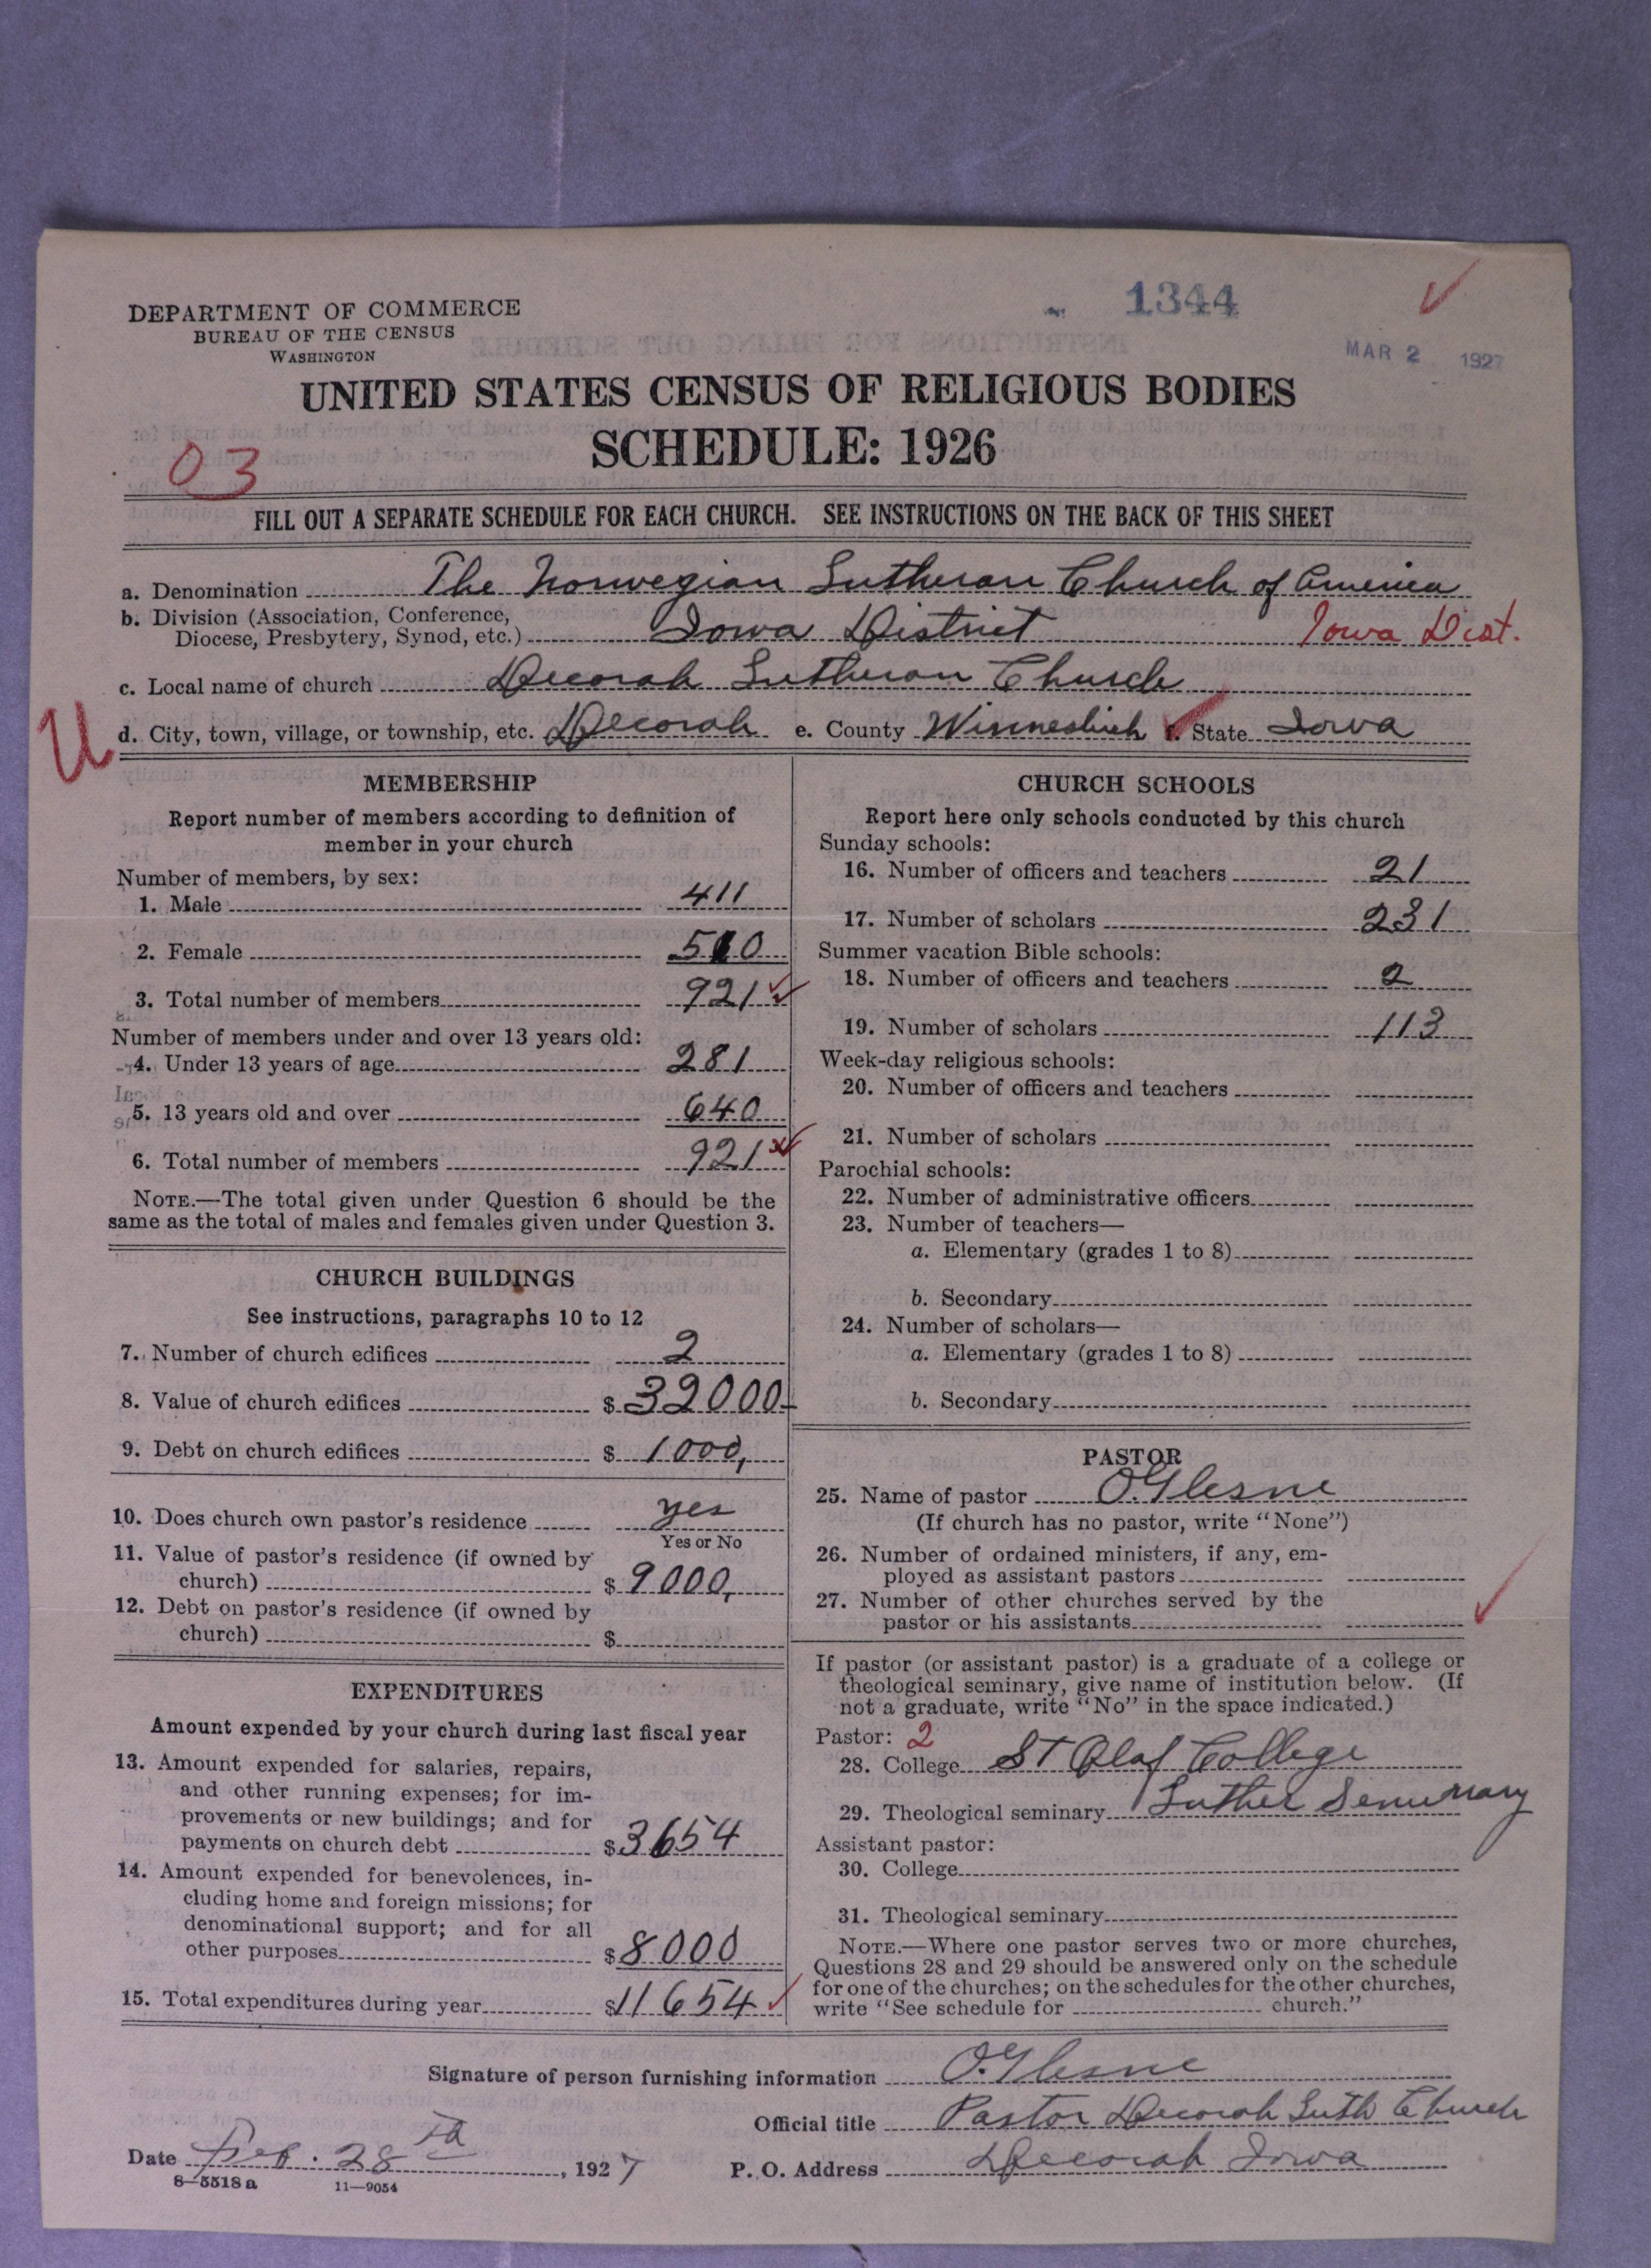 1344
MAR 2 1927
DEPARTMENT OF COMMERCE
BUREAU OF THE CENSUS
WASHINGTON
UNITED STATES CENSUS OF RELIGIOUS BODIES
SCHEDULE: 1926
03
FILL OUT A SEPARATE SCHEDULE FOR EACH CHURCH. SEE INSTRUCTIONS ON THE BACK OF THIS SHEET
a. Denomination The Norwegian Lutheran Church of America
b. Division (Association, Conference,
Diocese, Presbytery, Synod, etc.) Iowa District Iowa Dist.
c. Local name of church Decorah Lutheran Church
U
d. City, town, village, or township, etc. Decorah e. County Winneshiek f. State Iowa
MEMBERSHIP
Report number of members according to definition of
member in your church
Number of members, by sex:
1. Male 411
2. Female 510
3. Total number of members 921
Number of members under and over 13 years old:
4. Under 13 years of age 281
5. 13 years old and over 640
6. Total number of members 921
NOTE.—The total given under Question 6 should be the
same as the total of males and females given under Question 3.
CHURCH BUILDINGS
See instructions, paragraphs 10 to 12
7. Number of church edifices 2
8. Value of church edifices $ 32000-
9. Debt on church edifices $ 1000,
10. Does church own pastor's residence yes
Yes or No
11. Value of pastor's residence (if owned by
church) $ 9000,
12. Debt on pastor's residence (if owned by
church) $
EXPENDITURES
Amount expended by your church during last fiscal year
13. Amount expended for salaries, repairs,
and other running expenses; for im-
provements or new buildings; and for
payments on church debt $ 3654
14. Amount expended for benevolences, in-
cluding home and foreign missions; for
denominational support; and for all
other purposes $ 8000
15. Total expenditures during year $ 11654
CHURCH SCHOOLS
Report here only schools conducted by this church
Sunday schools:
16. Number of officers and teachers 21
17. Number of scholars 231
Summer vacation Bible schools:
18. Number of officers and teachers 2
19. Number of scholars 113
Week-day religious schools:
20. Number of officers and teachers
21. Number of scholars
Parochial schools:
22. Number of administrative officers
23. Number of teachers—
a. Elementary (grades 1 to 8)
b. Secondary
24. Number of scholars—
a. Elementary (grades 1 to 8)
b. Secondary
PASTOR
25. Name of pastor O. Glesne
(If church has no pastor, write "None")
26. Number of ordained ministers, if any, em-
ployed as assistant pastors
27. Number of other churches served by the
pastor or his assistants
If pastor (or assistant pastor) is a graduate of a college or
theological seminary, give name of institution below. (If
not a graduate, write "No" in the space indicated.)
Pastor: 2
28. College St Olaf College
29. Theological seminary Luther Seminary
Assistant pastor:
30. College
31. Theological seminary
NOTE.—Where one pastor serves two or more churches,
Questions 28 and 29 should be answered only on the schedule
for one of the churches; on the schedules for the other churches,
write "See schedule for church."
Signature of person furnishing information O. Glesne
Official title Pastor Decorah Luth Church
Date Feb. 28th, 1927 P. O. Address Decorah Iowa
8-5518 a 11-9054